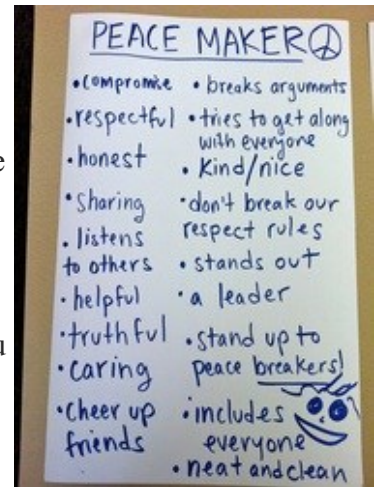 PEACE MAKER
• compromise
• respectful
• honest
• sharing
• listens
to others
• helpful
• truthful
• caring
• cheer up
friends
• breaks arguments
• tries to get along
with everyone
• Kind/nice
• don't break our
respect rules
• stands out
• a leader
• stand up to
peace breakers!
• includes
everyone
• neat and clean